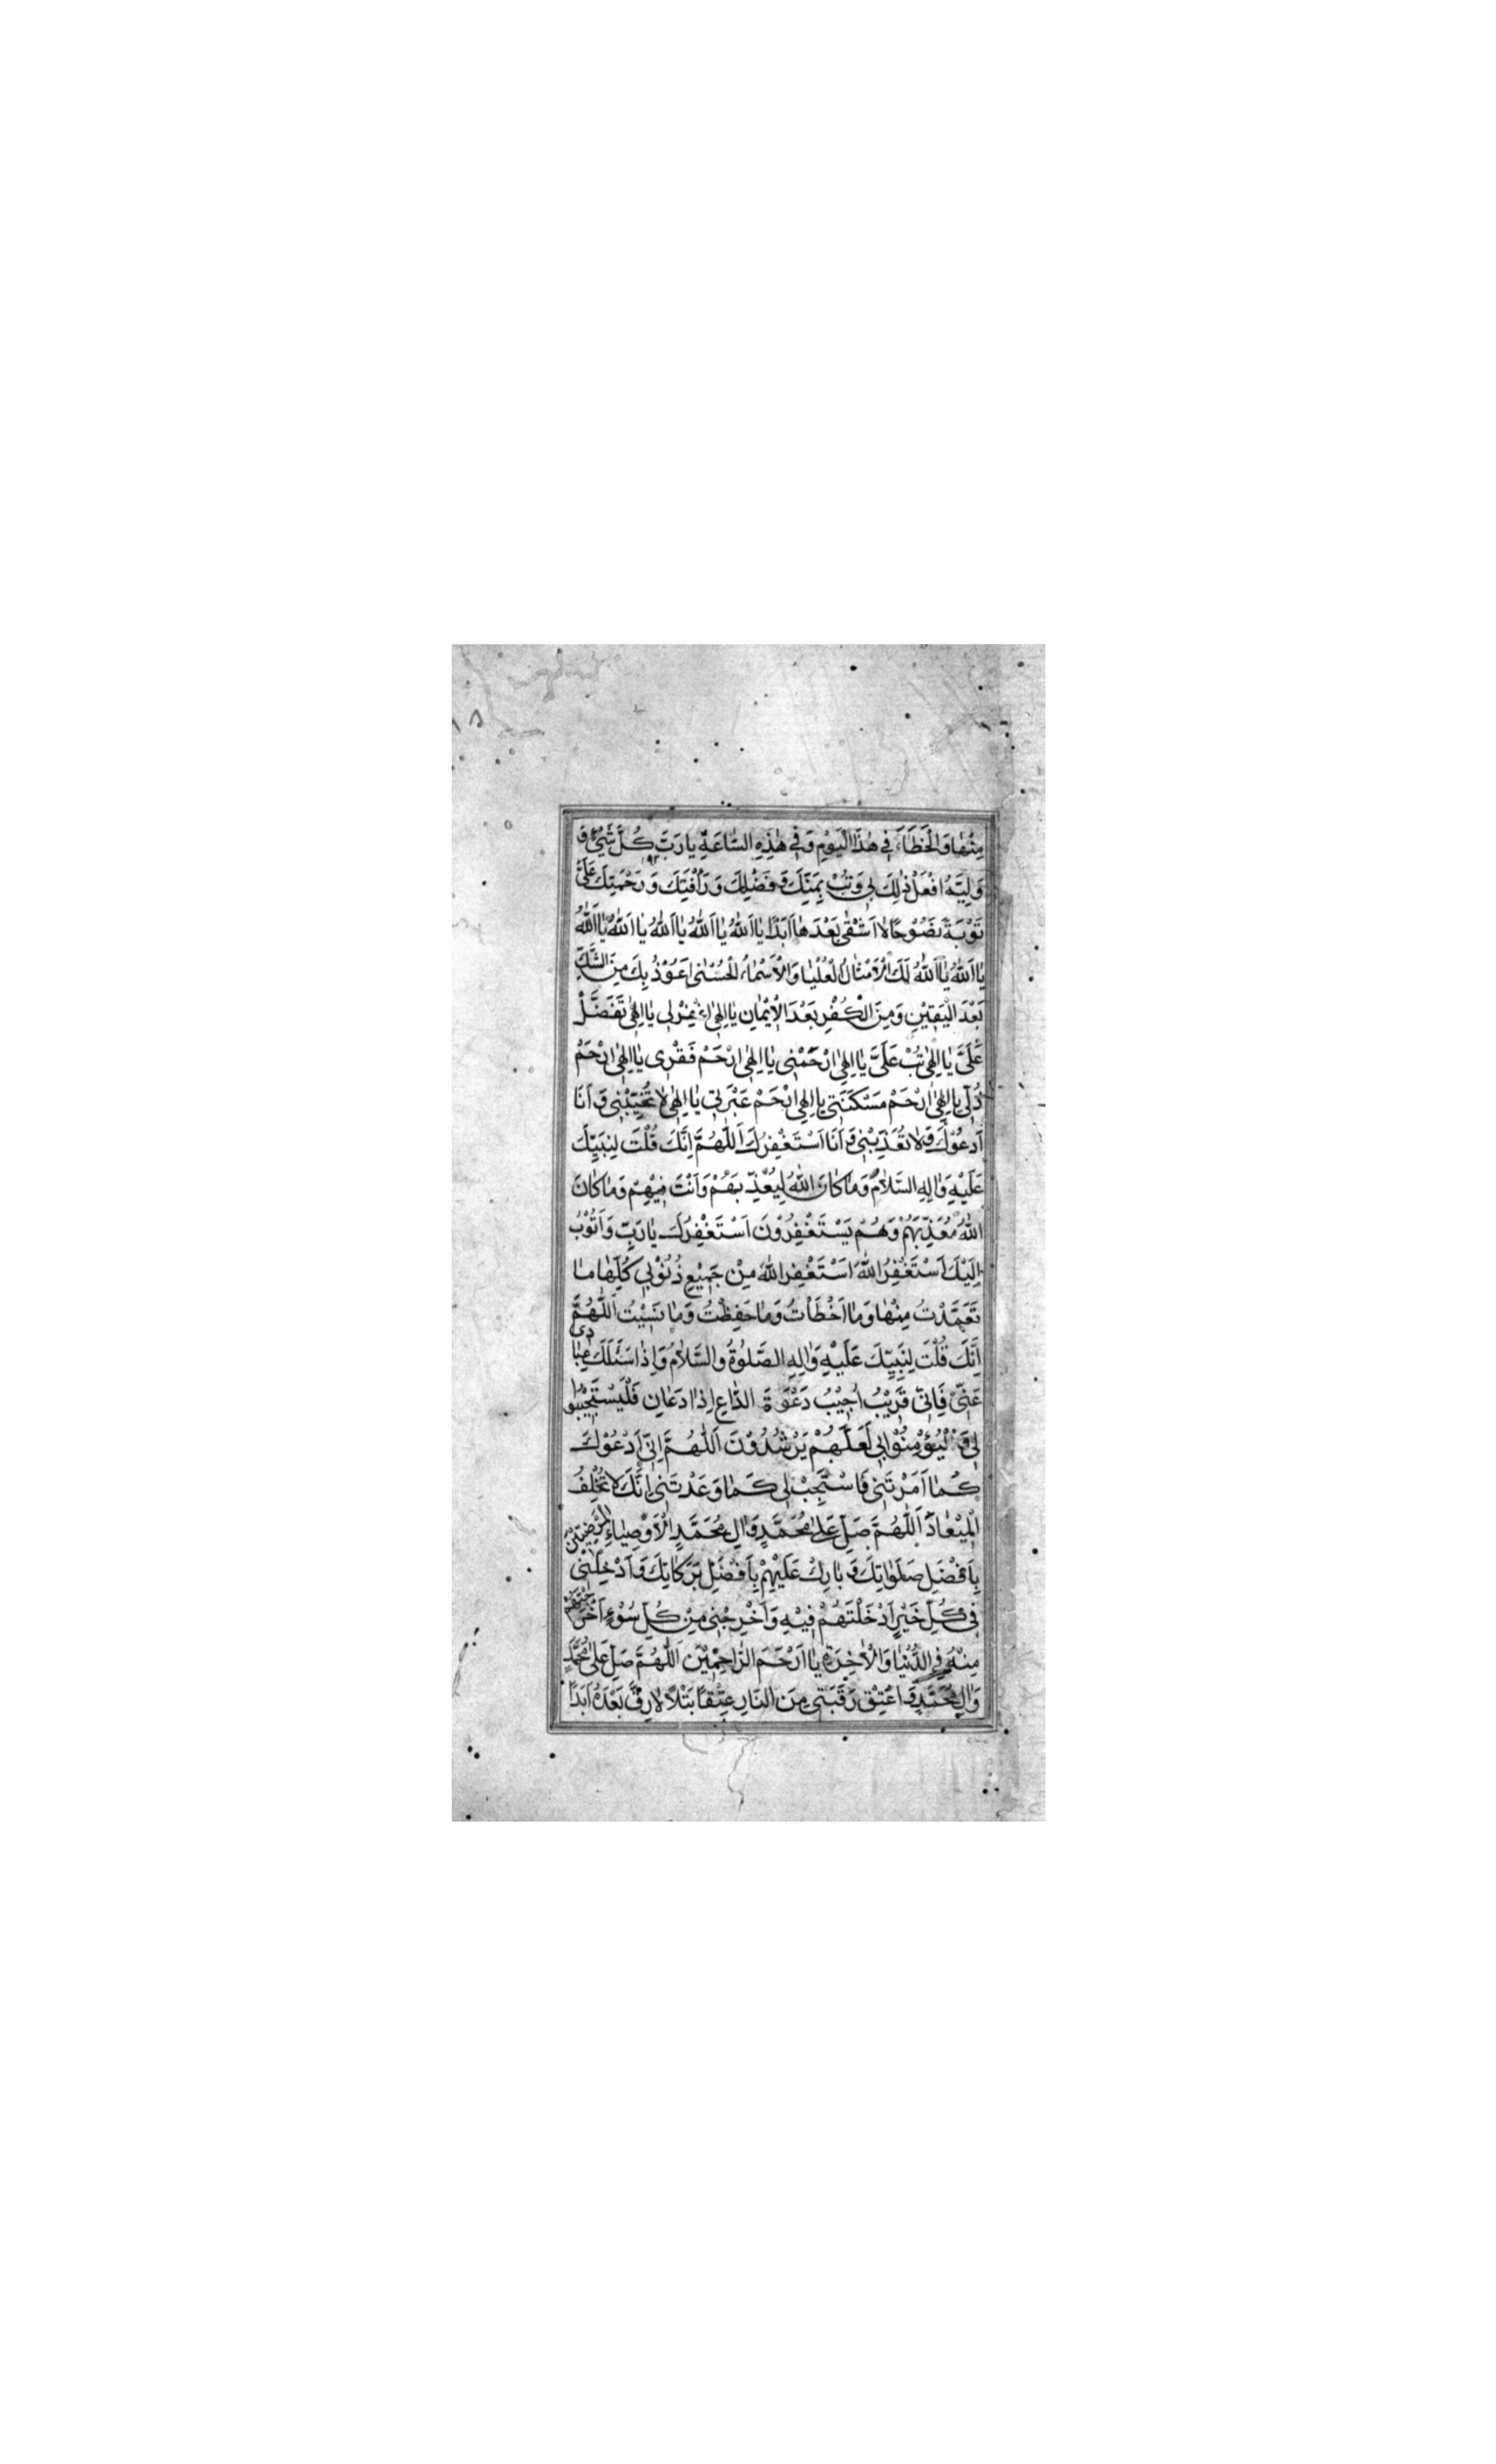 مِنْهَا وَالْخَطَاءَ فِي هٰذَا الْيَوْمِ وَفِي هٰذِهِ السَّاعَةِ يَا رَبَّ كُلِّ شَيْءٍ وَ
وَلِيَّهُ افْعَلْ ذٰلِكَ لِي وَتُبْ بِمَنِّكَ وَفَضْلِكَ وَرَأْفَتِكَ وَرَحْمَتِكَ عَلَيَّ
تَوْبَةً نَصُوْحًا لَا اَشْقٰى بَعْدَهَا اَبَدًا يَا اَللّٰهُ يَا اَللّٰهُ يَا اَللّٰهُ يَا اَللّٰهُ يَا اَللّٰهُ
يَا اَللّٰهُ يَا اَللّٰهُ لَكَ الْاَمْثَالُ الْعُلْيَا وَالْاَسْمَاءُ الْحُسْنٰى اَعُوْذُ بِكَ مِنَ الشَّكِّ
بَعْدَ الْيَقِيْنِ وَمِنَ الْكُفْرِ بَعْدَ الْاِيْمَانِ يَا اِلٰهِي اغْفِرْ لِي يَا اِلٰهِي تَفَضَّلْ
عَلَيَّ يَا اِلٰهِي تُبْ عَلَيَّ يَا اِلٰهِي ارْحَمْنِي يَا اِلٰهِي ارْحَمْ فَقْرِي يَا اِلٰهِي ارْحَمْ
ذُلِّي يَا اِلٰهِي ارْحَمْ مَسْكَنَتِي يَا اِلٰهِي ارْحَمْ عَبْرَتِي يَا اِلٰهِي لَا تُخَيِّبْنِي وَ اَنَا
اَدْعُوْكَ وَلَا تُعَذِّبْنِي وَ اَنَا اَسْتَغْفِرُكَ اَللّٰهُمَّ اِنَّكَ قُلْتَ لِنَبِيِّكَ
عَلَيْهِ وَاٰلِهِ السَّلَامُ وَمَا كَانَ اللّٰهُ لِيُعَذِّبَهُمْ وَاَنْتَ فِيْهِمْ وَمَا كَانَ
اللّٰهُ مُعَذِّبَهُمْ وَهُمْ يَسْتَغْفِرُوْنَ اَسْتَغْفِرُكَ يَا رَبِّ وَاَتُوْبُ
اِلَيْكَ اَسْتَغْفِرُ اللّٰهَ اَسْتَغْفِرُ اللّٰهَ مِنْ جَمِيْعِ ذُنُوْبِي كُلِّهَا مَا
تَعَمَّدْتُ مِنْهَا وَمَا اَخْطَأْتُ وَمَا حَفِظْتُ وَمَا نَسِيْتُ اَللّٰهُمَّ
اِنَّكَ قُلْتَ لِنَبِيِّكَ عَلَيْهِ وَاٰلِهِ الصَّلٰوةُ وَالسَّلَامُ وَاِذَا سَئَلَكَ عِبَادِي
عَنِّي فَاِنِّي قَرِيْبٌ اُجِيْبُ دَعْوَةَ الدَّاعِ اِذَا دَعَانِ فَلْيَسْتَجِيْبُوا
لِي وَ لْيُؤْمِنُوْا بِي لَعَلَّهُمْ يَرْشُدُوْنَ اَللّٰهُمَّ اِنِّي اَدْعُوْكَ
كَمَا اَمَرْتَنِي فَاسْتَجِبْ لِي كَمَا وَعَدْتَنِي اِنَّكَ لَا تُخْلِفُ
الْمِيْعَادَ اَللّٰهُمَّ صَلِّ عَلٰى مُحَمَّدٍ وَاٰلِ مُحَمَّدٍ الْاَوْصِيَاءِ الْمَرْضِيِّيْنَ
بِاَفْضَلِ صَلَوَاتِكَ وَ بَارِكْ عَلَيْهِمْ بِاَفْضَلِ بَرَكَاتِكَ وَ اَدْخِلْنِي
فِي كُلِّ خَيْرٍ اَدْخَلْتَهُمْ فِيْهِ وَاَخْرِجْنِي مِنْ كُلِّ سُوْءٍ اَخْرَجْتَهُمْ
مِنْهُ فِي الدُّنْيَا وَالْاٰخِرَةِ يَا اَرْحَمَ الرَّاحِمِيْنَ اَللّٰهُمَّ صَلِّ عَلٰى مُحَمَّدٍ
وَاٰلِ مُحَمَّدٍ وَ اَعْتِقْ رَقَبَتِي مِنَ النَّارِ عِتْقًا بَتْلًا لَا رِقَّ بَعْدَهُ اَبَدًا